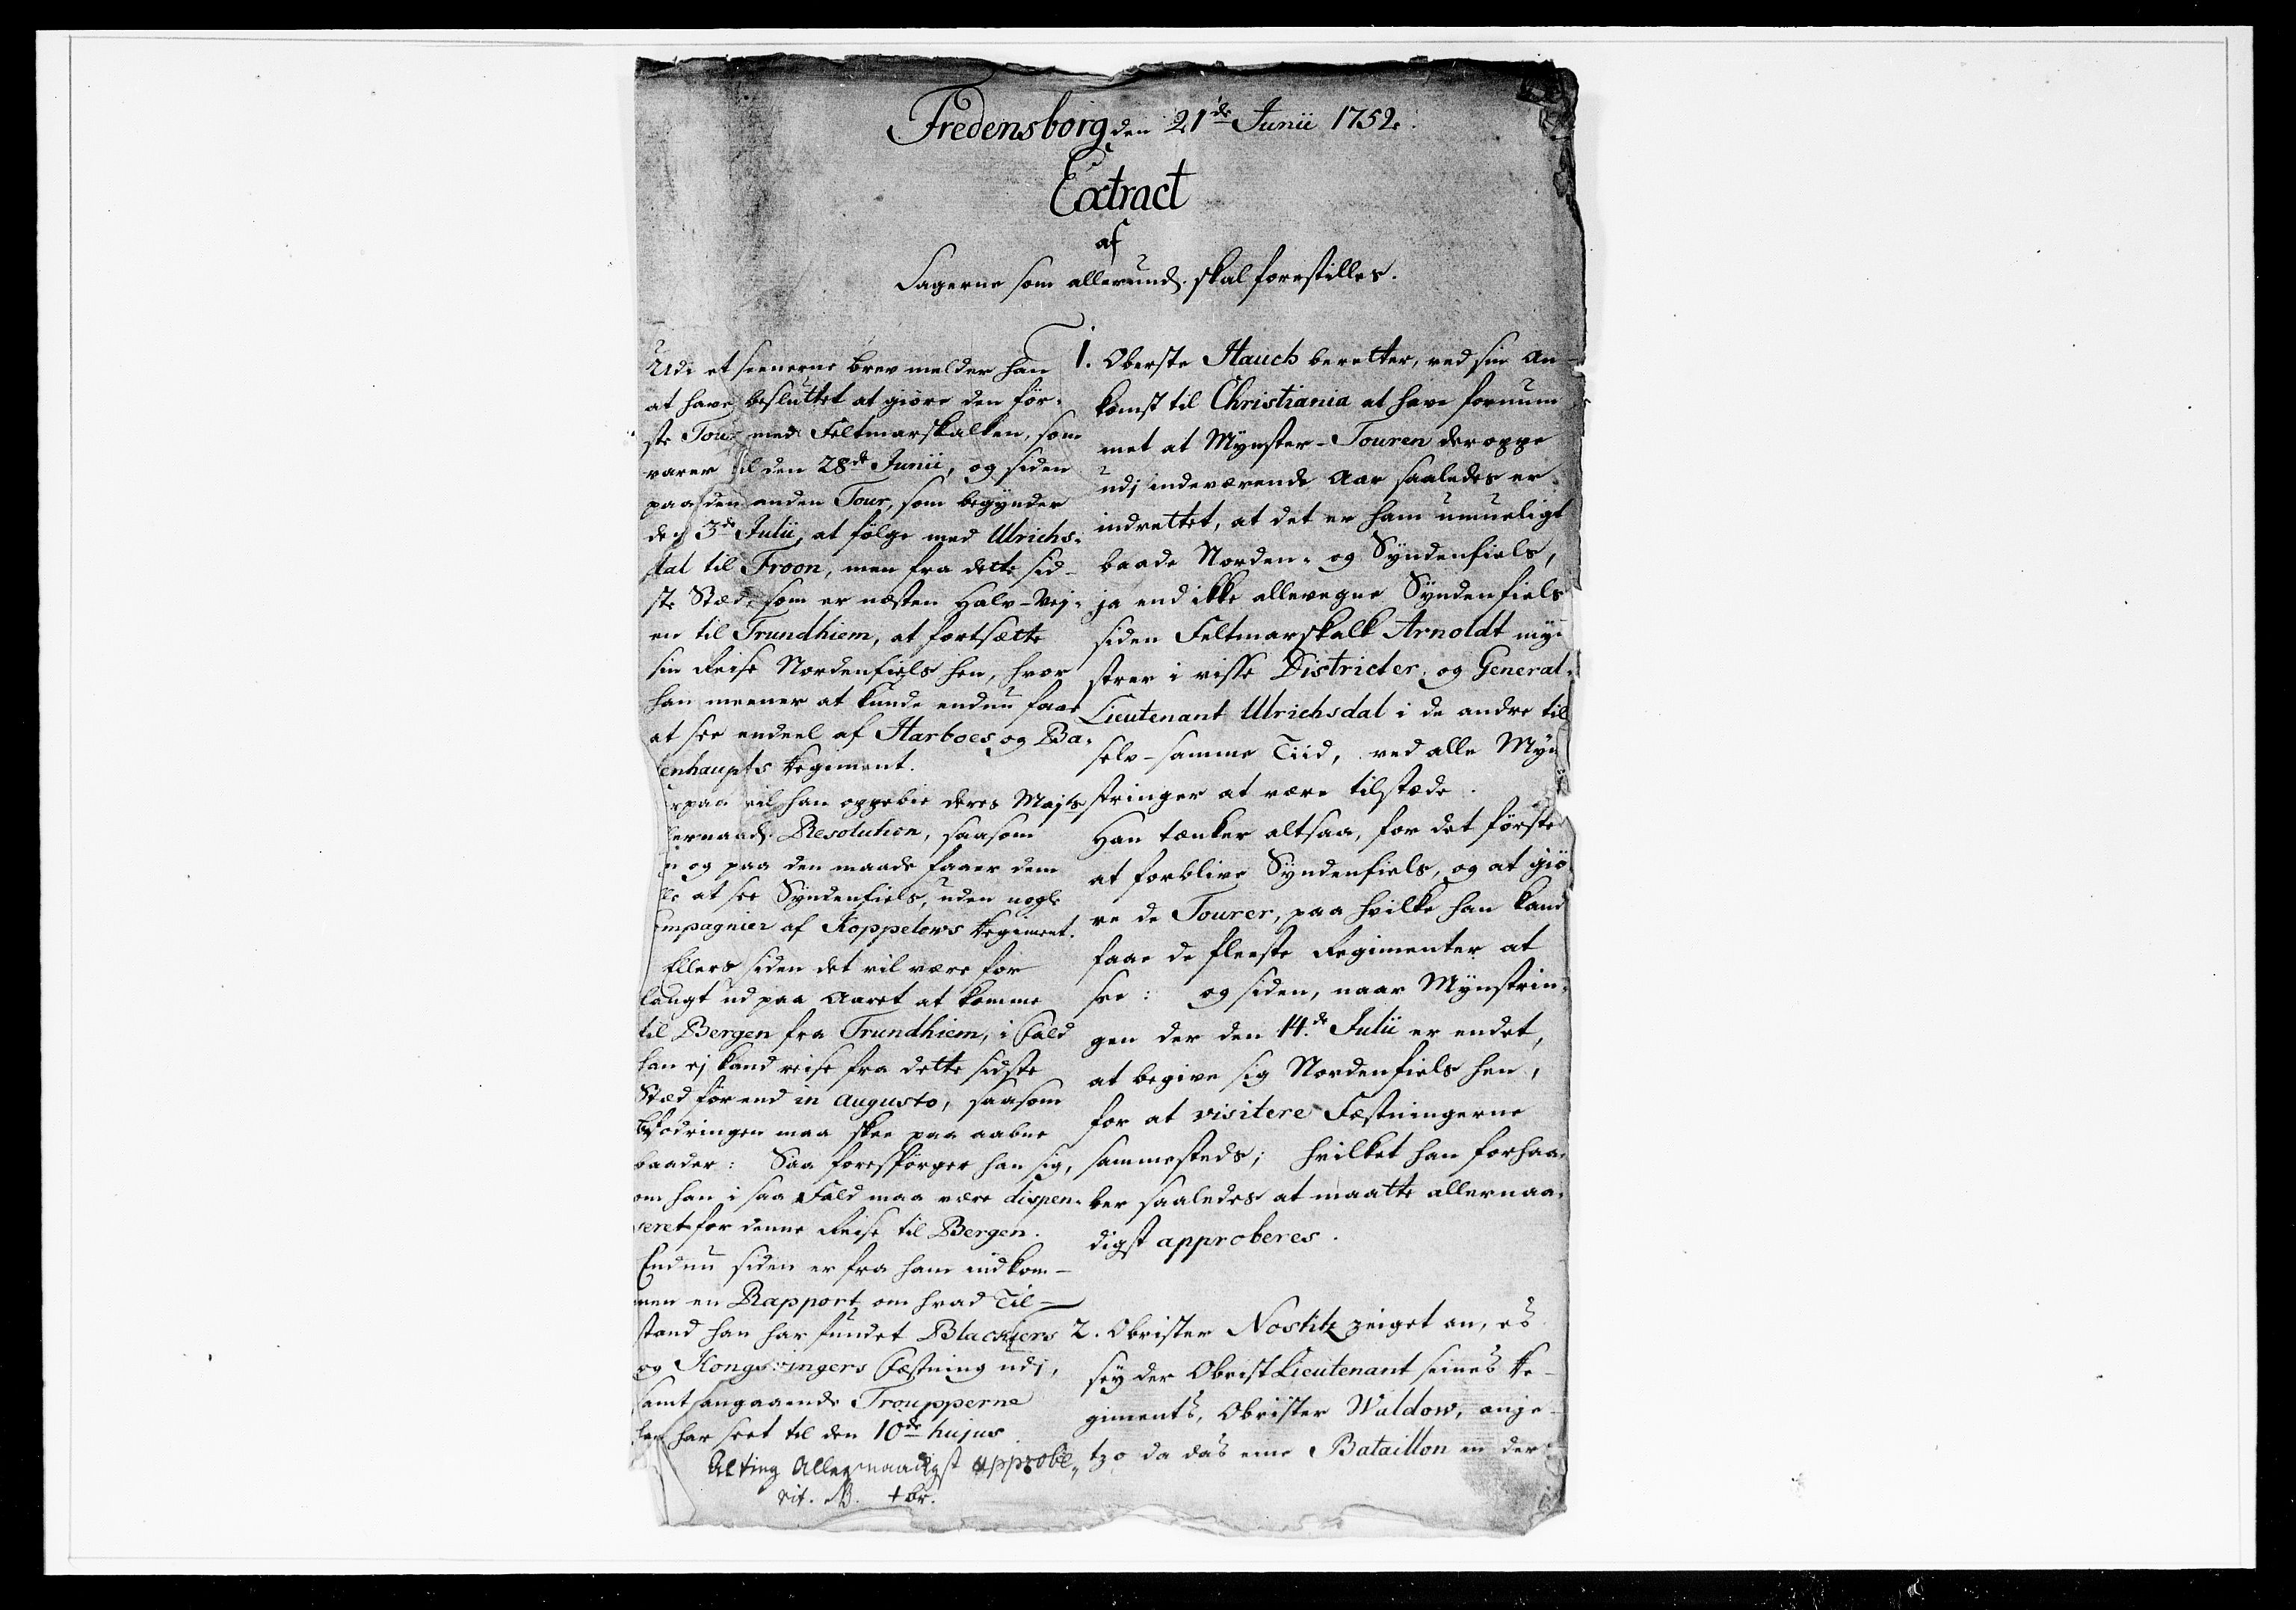 Fredensborg den 21de Junii 1752.
Extract
af
Sagerne som allerund. skal forestilles.
Udi et seenerne brev melder han
at have besluttet at giøre den før-
ste Tour med Feltmarskalken, som
varer til den 28de Junii, og siden
paa den anden Tour, som begynder
den 3de Julii, at følge med Ulrichs-
dal til Froon, men fra dette sid-
ste Stæd, som er næsten Halv-Vej-
en til Trundhiem, at fortsætte
sin Reise Nordenfiels hen, hvor
han meener at kunde endnu faae
at see endeel af Harboes og Ba-
enhaupts Regiment.
paa vil han oppebie deres Majts
ernaad. Resolution, saasom
og paa den maade faaer dem
at see Syndenfiels, uden nogle
ompagnier af Koppelows Regiment.
Ellers siden det vil være for
langt ud paa Aaret at komme
til Bergen fra Trundhiem, i Fald
han ej kand reise fra dette sidste
Stæd før end in Augusto, saasom
Befodringen maa skee paa aabne
baader: Saa forespørger han sig,
om han i saa Fald maa være dispen-
seret for denne Reise til Bergen.
Endnu siden er fra ham indkom-
men en Rapport om hvad Til-
stand han har fundet Blackiers
og Kongsvingers Fæstning udi,
samt angaaende Troupperne
han har seet til den 10de hujus
Alting Allernaadigst approbe-
rit. NB. + br.
1. Oberste Hauch beretter, ved sin An-
komst til Christiania at have fornum-
met at Mynster-Touren der oppe
udj indeværende Aar saaledes er
indrettet, at det er ham umueligt
baade Norden- og Syndenfiels,
ja end ikke allevegne Syndenfiels
siden Feltmarskalk Arnoldt myn-
strer i visse Districter, og General-
Lieutenant Ulrichsdal i de andre til
selv-samme Tiid, ved alle Myn
stringer at være tilstæde.
Han tænker altsaa, for det første
at forblive Syndenfiels, og at giø
re de Tourer, paa hvilke han kand
faae de fleeste Regimenter at
see: og siden, naar Mynstrin-
gen der den 14de Julii er endet,
at begive sig Nordenfiels hen,
for at visitere Fæstningerne
sammesteds; hvilket han forhaa-
ber saaledes at maatte allernaa-
digst approberes.
2. Obrister Nostitz zeiget an, es
sey der Obrist Lieutenant seines Re-
giments, Obrister Waldow, anje-
tzo da das eine Bataillon in der